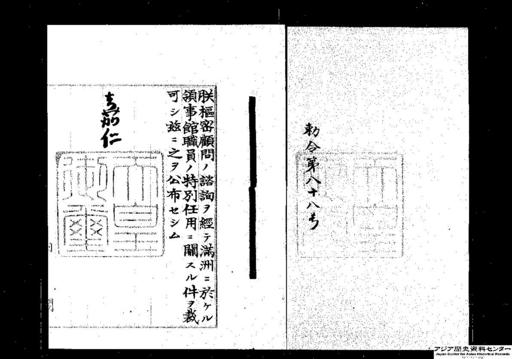 勅令第八十八号
朕樞密顧問ノ諮詢ヲ經テ滿洲ニ於ケル
領事館職員ノ特別任用ニ關スル件ヲ裁
可シ茲ニ之ヲ公布セシム
嘉仁
天皇
御璽
アジア歴史資料センター
Japan Center for Asian Historical Records